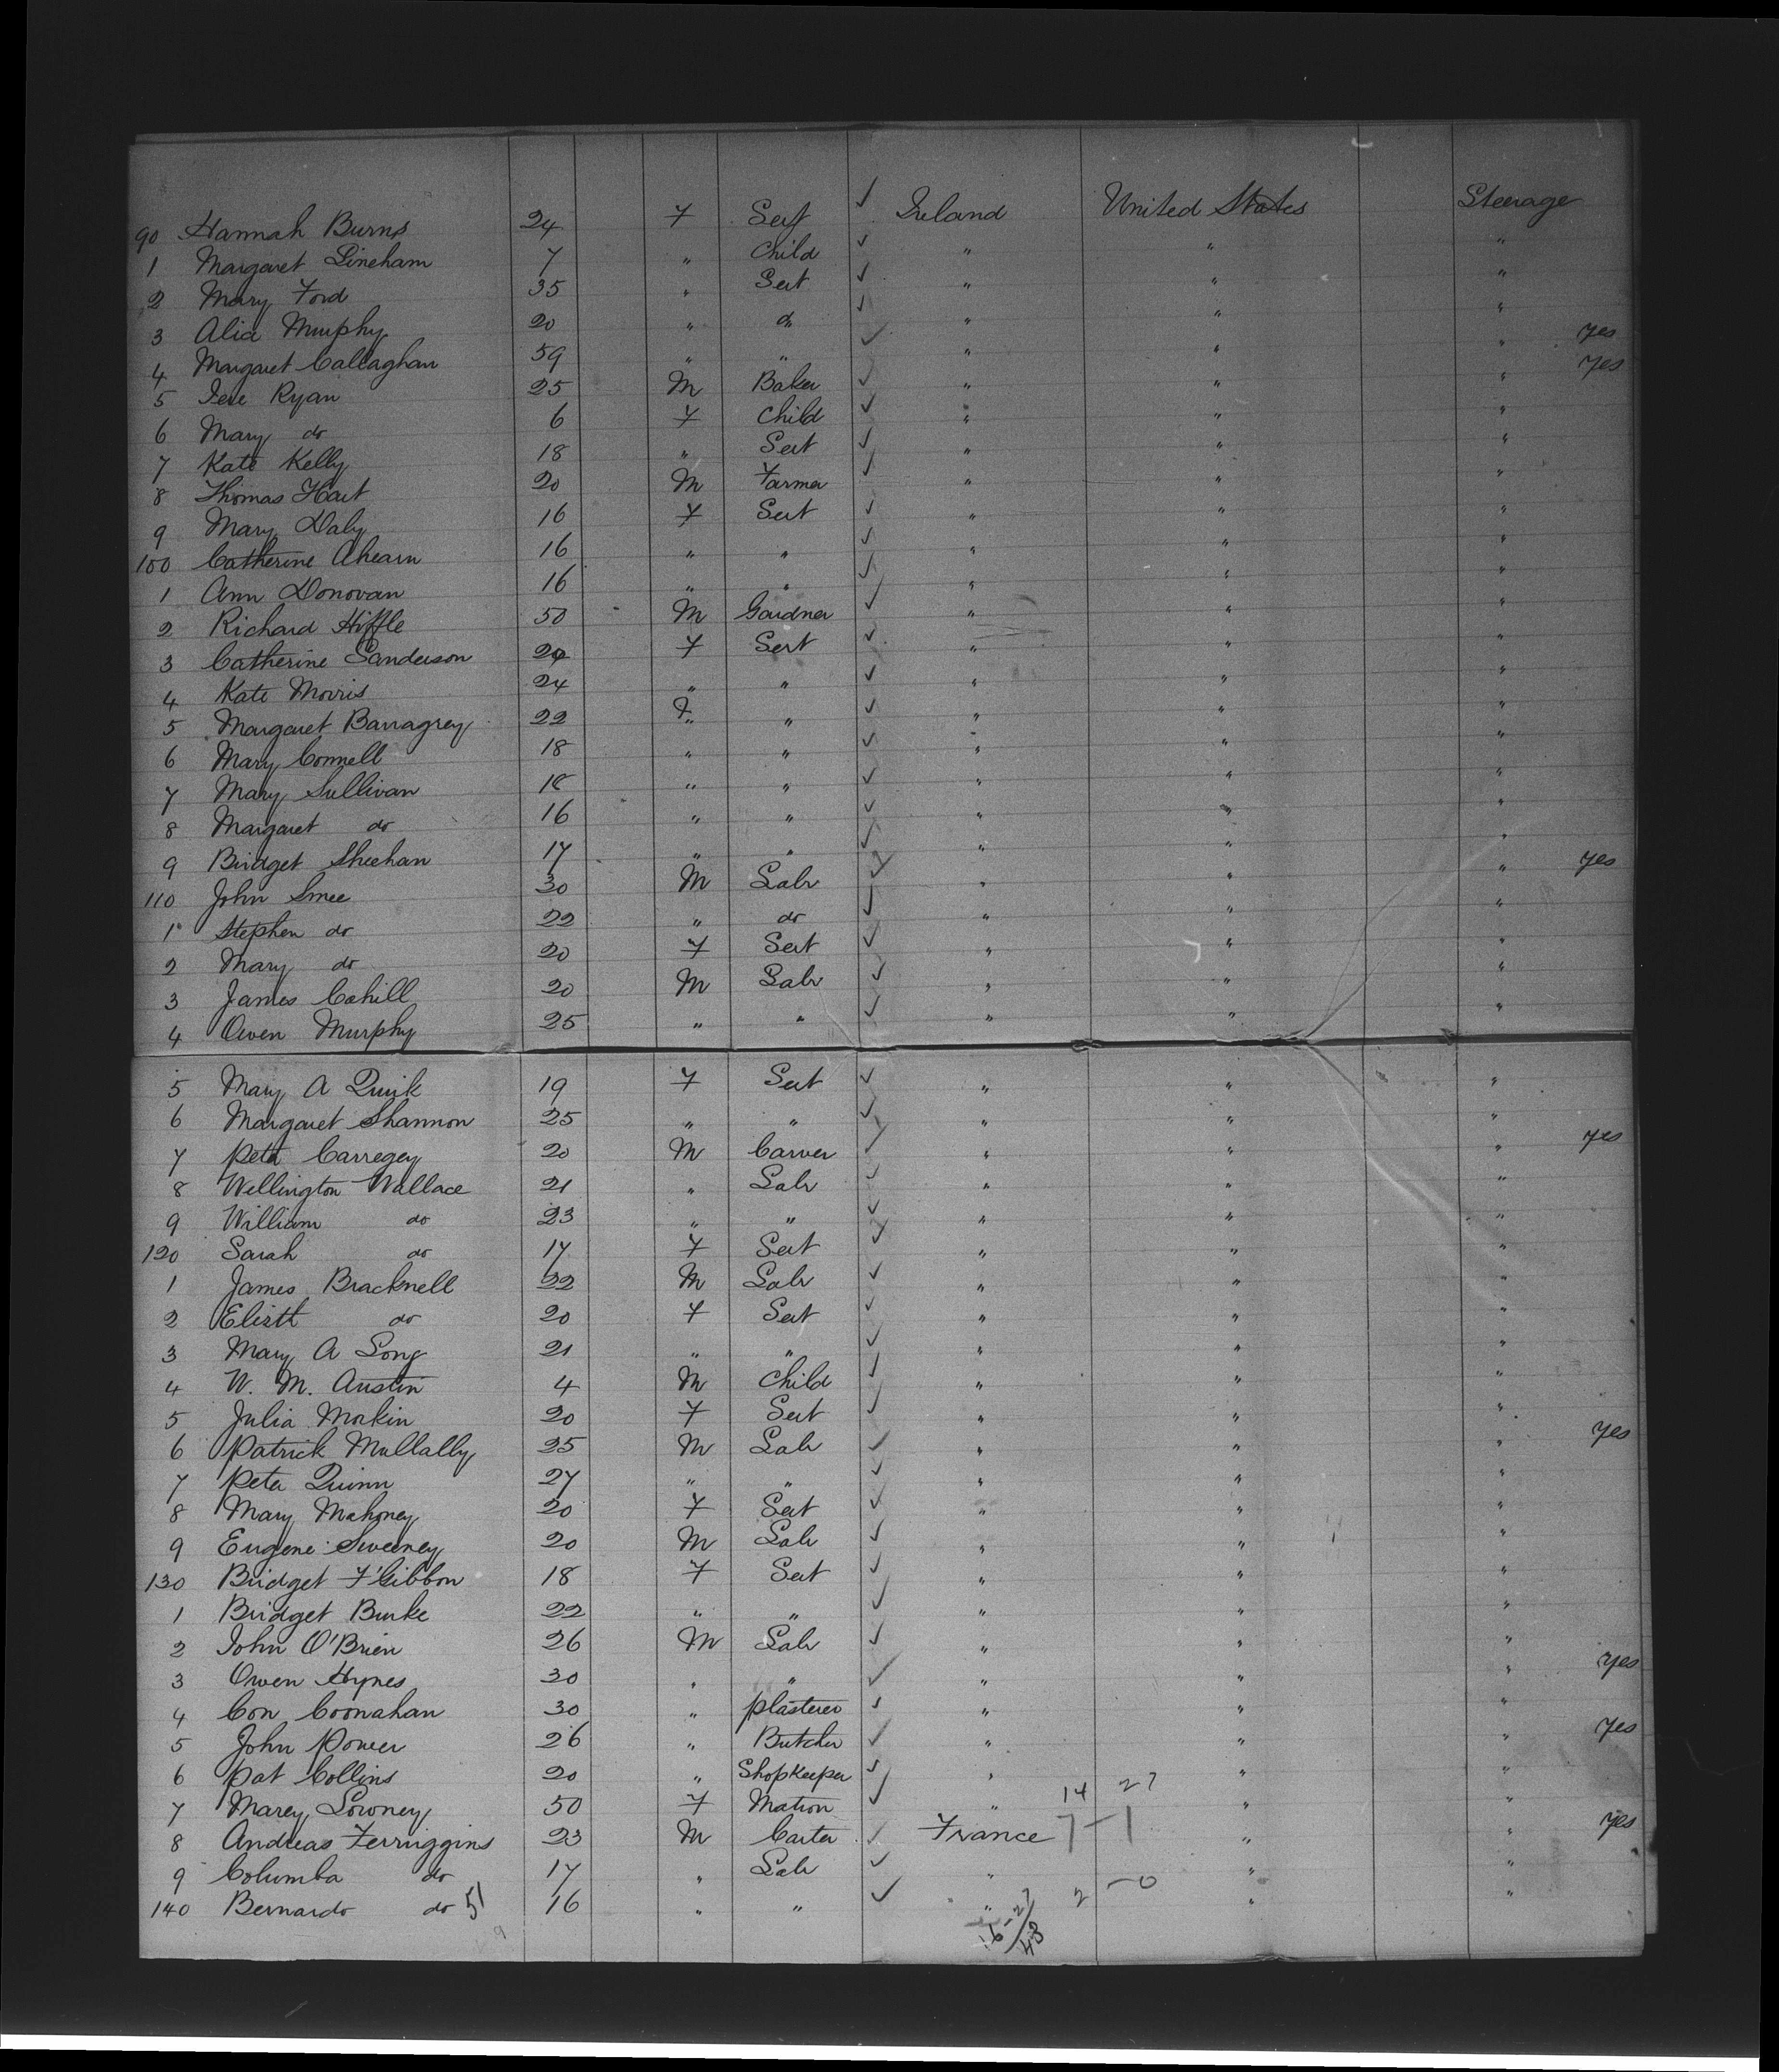 90 Hannah Burns 24 F Sert ✓ Ireland United States Steerage
1 Margaret Lineham 7 " Child ✓ " " "
2 Mary Ford 35 " Sert ✓ " " "
3 Alice Murphy 20 " do ✓ " " "
4 Margaret Callaghan 59 " " ✓ " " " Yes
5 Jere Ryan 25 M Baker ✓ " " " Yes
6 Mary do 6 F Child ✓ " " "
7 Kate Kelly 18 " Sert ✓ " " "
8 Thomas Hart 20 M Farmer ✓ " " "
9 Mary Daly 16 F Sert ✓ " " "
100 Catherine Ahearn 16 " " ✓ " " "
1 Ann Donovan 16 " " ✓ " " "
2 Richard Hiffle 50 M Gardner ✓ " " "
3 Catherine Sanderson F Sert ✓ " " "
4 Kate Morris 24 " " ✓ " " "
5 Margaret Barragrey 22 F " ✓ " " "
6 Mary Connell 18 " " ✓ " " "
7 Mary Sullivan 18 " " ✓ " " "
8 Margaret do 16 " " ✓ " " "
9 Bridget Sheehan 17 " " ✓ " " "
110 John Smee 30 M Labr ✓ " " " Yes
1 Stephen do 22 " do ✓ " " "
2 Mary do 20 F Sert ✓ " " "
3 James Cahill 20 M Labr ✓ " " "
4 Owen Murphy 25 " " ✓ " " "
5 Mary A Quirk 19 F Sert ✓ " " "
6 Margaret Shannon 25 " " ✓ " " "
7 Peter Carregey 20 M Carver ✓ " " " Yes
8 Wellington Wallace 21 " Labr ✓ " " "
9 William do 23 " " ✓ " " "
120 Sarah do 17 F Sert ✓ " " "
1 James Bracknell 22 M Labr ✓ " " "
2 Elizth do 20 F Sert ✓ " " "
3 Mary A Long 21 " " ✓ " " "
4 W. M. Austin 4 M Child ✓ " " "
5 Julia Morkin 20 F Sert ✓ " " "
6 Patrick Mullally 25 M Labr ✓ " " " Yes
7 Peter Quinn 27 " " ✓ " " "
8 Mary Mahoney 20 F Sert ✓ " " "
9 Eugene Sweeney 20 M Labr ✓ " " "
130 Bridget F'Gibbon 18 F Sert ✓ " " "
1 Bridget Burke 22 " " ✓ " " "
2 John O'Brien 26 M Labr ✓ " " "
3 Owen Hynes 30 " " ✓ " " " Yes
4 Con Coonahan 30 " Plasterer ✓ " " "
5 John Power 26 " Butcher ✓ " " " Yes
6 Pat Collins 20 " Shopkeeper ✓ " " "
7 Marey Lowney 50 F Matron ✓ " 14 27 " "
8 Andreas Ferruggins 23 M Carter ✓ France 7-1 " " Yes
9 Columba do 17 " Labr ✓ " " "
140 Bernardo do 51 16 " " ✓ " 2 -0 " "
16-27/43